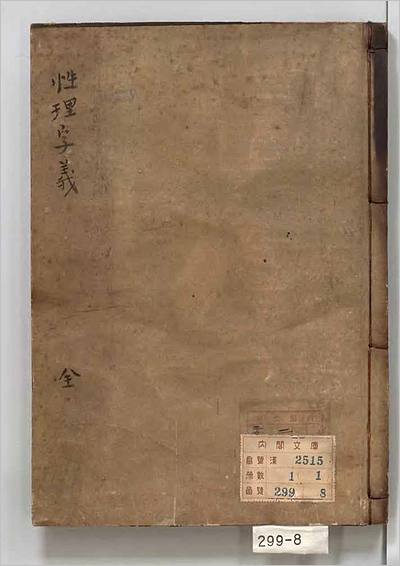 性理字義
全
内閣文庫
番號 漢 2515
冊數 1 1
函號 299 8
299-8